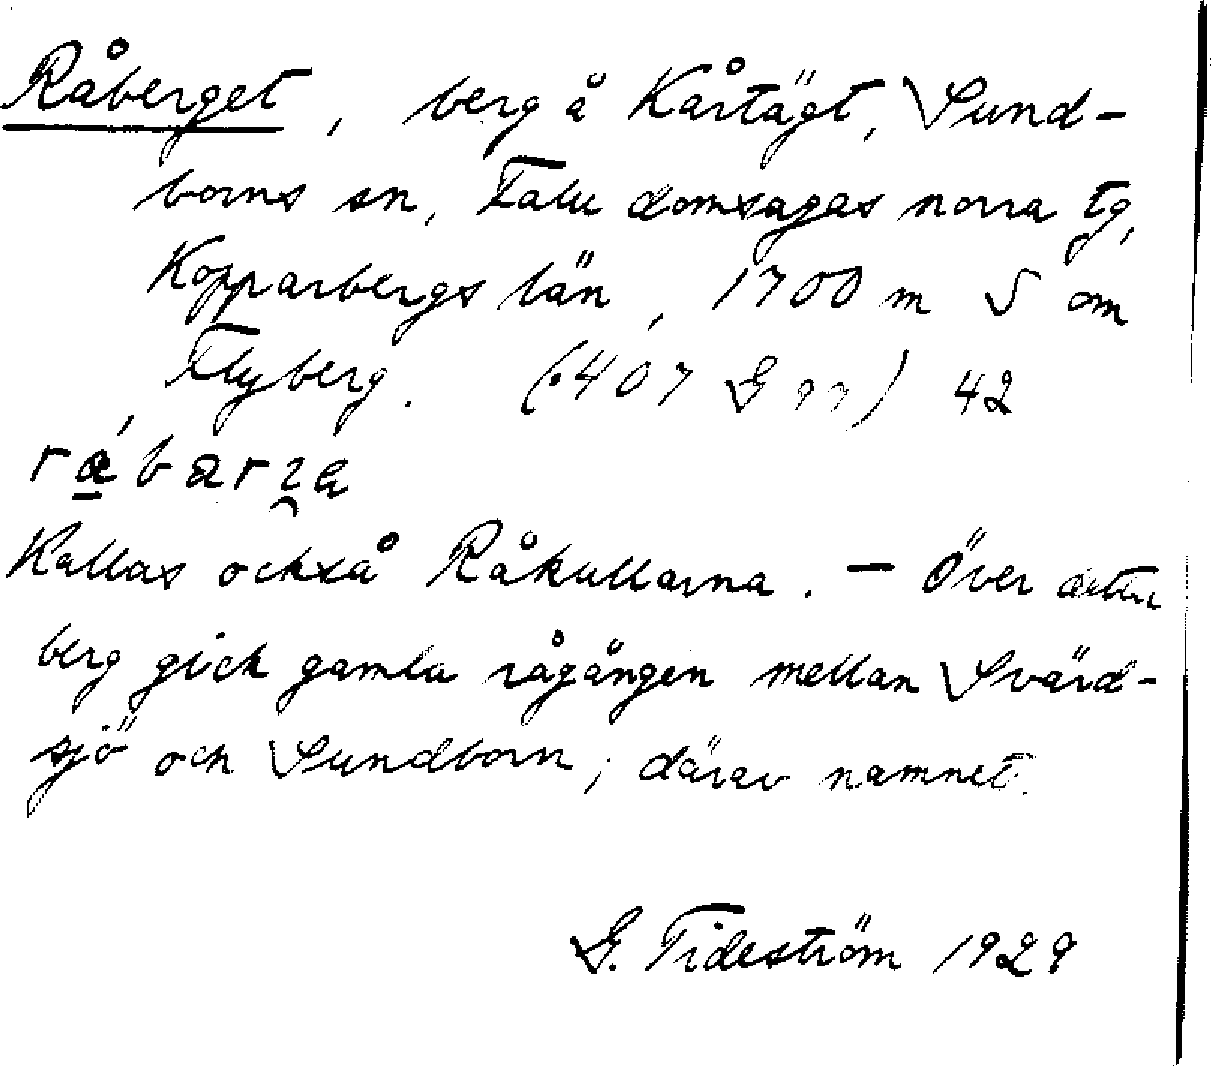 Råberget, berg å Kårtägt, Sund-
borns sn, Falu domsagas norra tg,
Kopparbergs län, 1700 m S om
Flyberg. (:407 G 77) 42
Kallas också Råkullarna. – Över detta
berg gick gamla rågången mellan Svärd-
sjö och Sundborn; därav namnet.
G. Tideström 1929